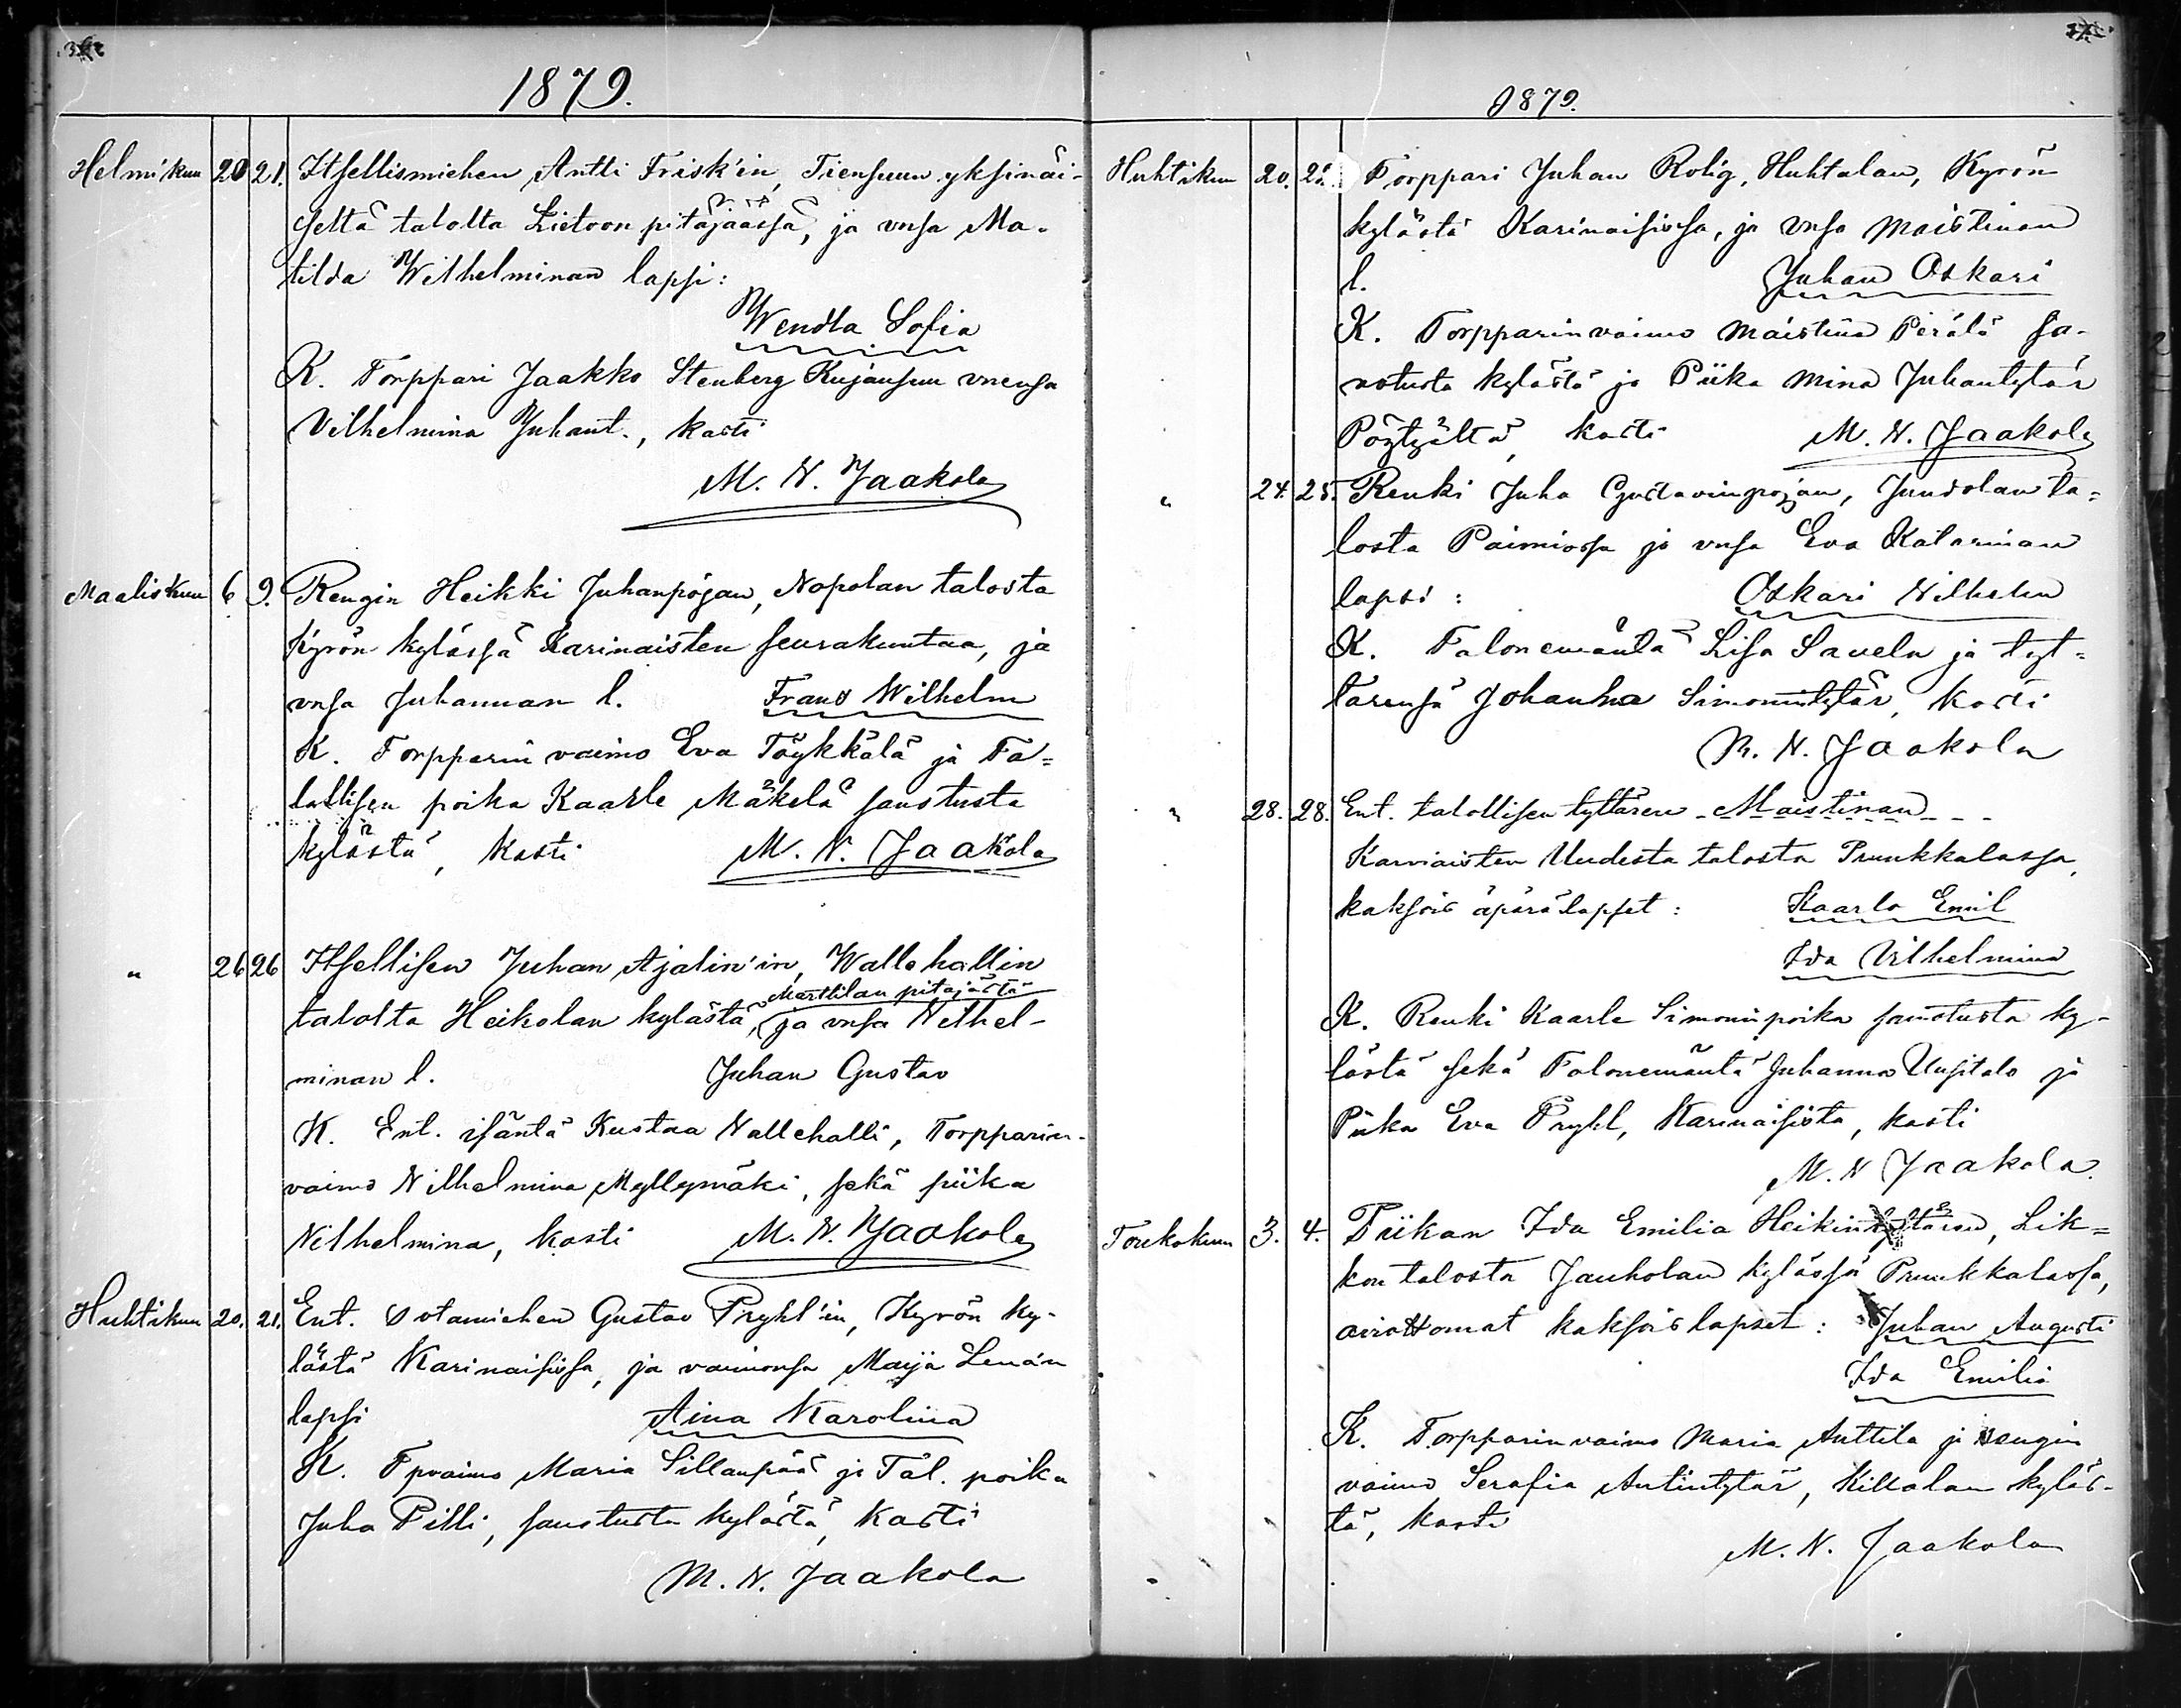 1879.
Helmikun 20 21. Itsellismiehen Antti Frisk'in, Tiensuun yksinäi-
seltä talolta Lietoon pitäjäässä, ja vnsa Ma-
tilda Wilhelminan lapsi:
Wendla Sofia
K. Torppari Jaakko Stenberg Kujansuu vnensa
Vilhelmina Juhant., kasti
M. N. Jaakola
Maaliskuun 6 9. Rengin Heikki Juhanpojan, Nopolan talosta
Kyrön kylässä Karinaisten seurakuntaa, ja
vnsa Juhannan l. Frans Wilhelm
K. Torpparin vaimo Eva Töykkälä ja Ta=
lollisen poika Kaarle Mäkelä saustusta
kylästä, kasti M. N. Jaakola
" 26 26 Itsellisen Juhan Ajalin'in, Wallehallin
Marttilan pitäjästä
talolta Heikolan kylästä, ja vnsa Vilhel-
minan l. Juhan Gustav
K. Ent. isäntä Kustaa Vallehalli, Torpparin-
vaimo Vilhelmina Myllymäki, sekä piika
Vilhelmina, kasti M. N. Jaakola
Huhtikuun 20. 21. Ent. sotamiehen Gustav Prykl'in, Kyrön ky-
lästä Karinaisissa, ja vaimonsa Maija Lenan
lapsi Aina Karolina
K. Tpvaimo Maria Sillanpää ja Tal. poika
Juha Pilli, saustusta kylästä, kasti
M. N. Jaakola
1879.
Huhtikuun 20. Torppari Juhan Rolig, Huhtalan, Kyrön
kylästä Karinaisissa, ja vnsa Maistinan
l. Juhan Oskari
K. Torpparinvaimo Maistina Perälä sa-
votusta kylästä ja Piika Mina Juhantytär
Pöytyältä, kasti M. N. Jaakola
" 24. 25. Renki Juha Gustavinpojan, Juntolan ta=
losta Paimiossa ja vnsa Eva Katarinan
lapsi: Oskari Vilhelm
K. Talonemäntä Lisa Lauela ja tyt=
tärensä Johanna Simonintytär, kasti
M. N. Jaakola
" 28. 28. Ent. talollisen tyttären Maistinan
Karviaisten Uudesta talosta Prunkkalassa,
kaksois äpärälapset: Kaarlo Emil
Ida Vilhelmina
K. Renki Kaarle Simoninpoika saustusta ky-
lästä sekä Talonemäntä Juhanna Uusitalo ja
Piika Eva Prykl, Karinaisista, kasti
M. N Jaakola.
Toukokuun 3. 4. Piikan Ida Emilia Heikintyttären, Lik=
kon talosta Jauholan kylässä Prunkkalassa,
aviottomat kaksoislapset: Juhan Augusti
Ida Emilia
K. Torpparinvaimo Maria Anttila ja rengin
vaimo Serafia Antintytär, Killalan kyläs-
tä, kasti
M. N. Jaakola